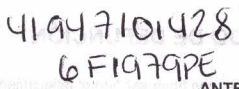 41947101428
6F1979PE
ANTE